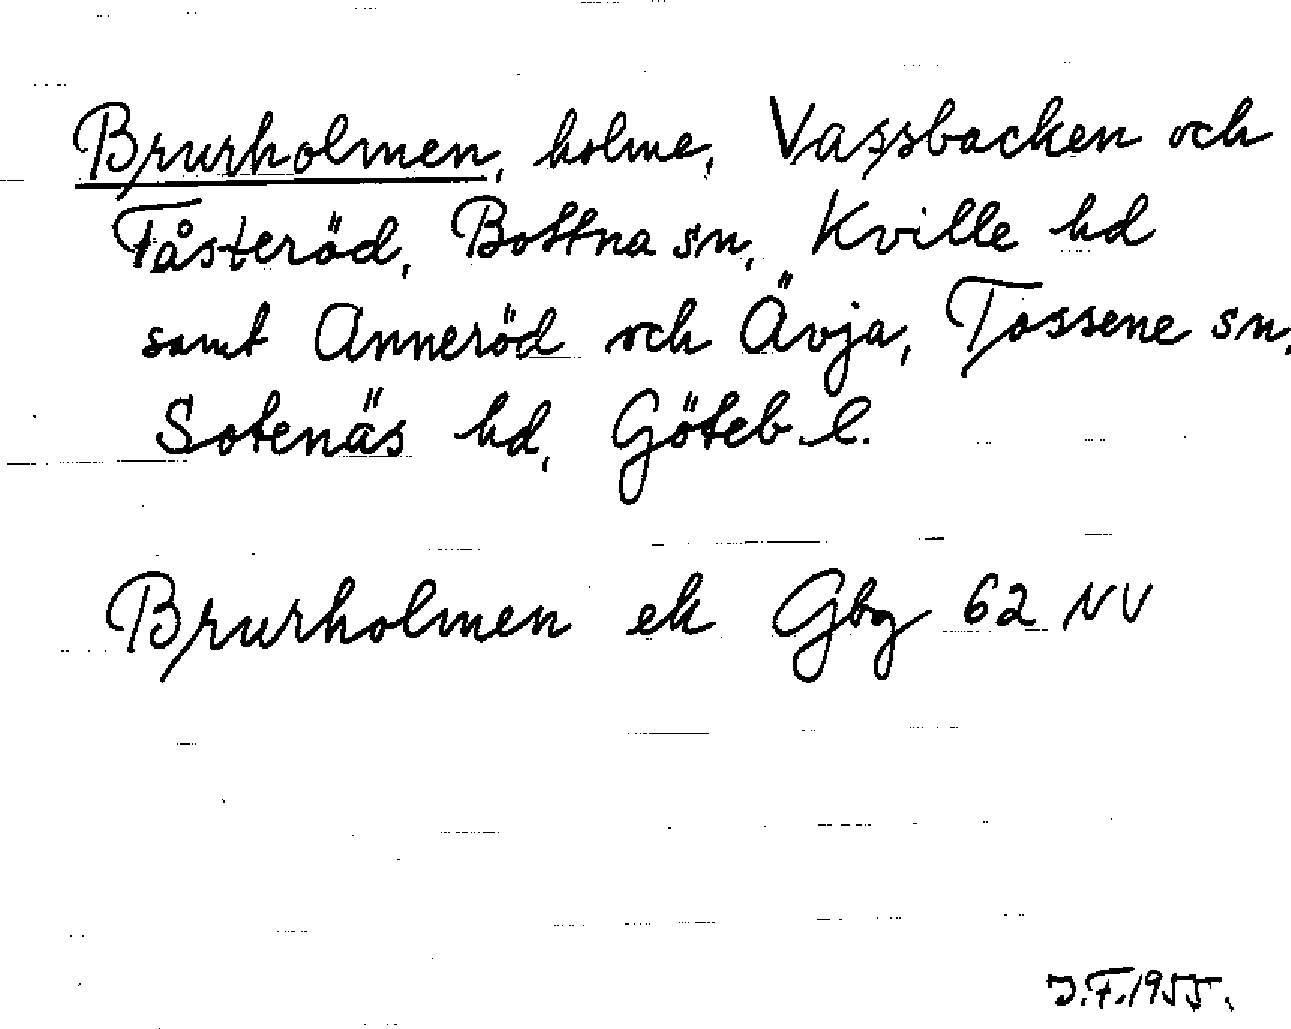 Brurholmen, holme, Vassbacken och
Fåsteröd, Bottna sn, Kville hd
samt Anneröd och Ävja, Tossene sn,
Sotenäs hd, Göteb. l.
Brurholmen ek Gbg 62 NV
J.F. 1955.